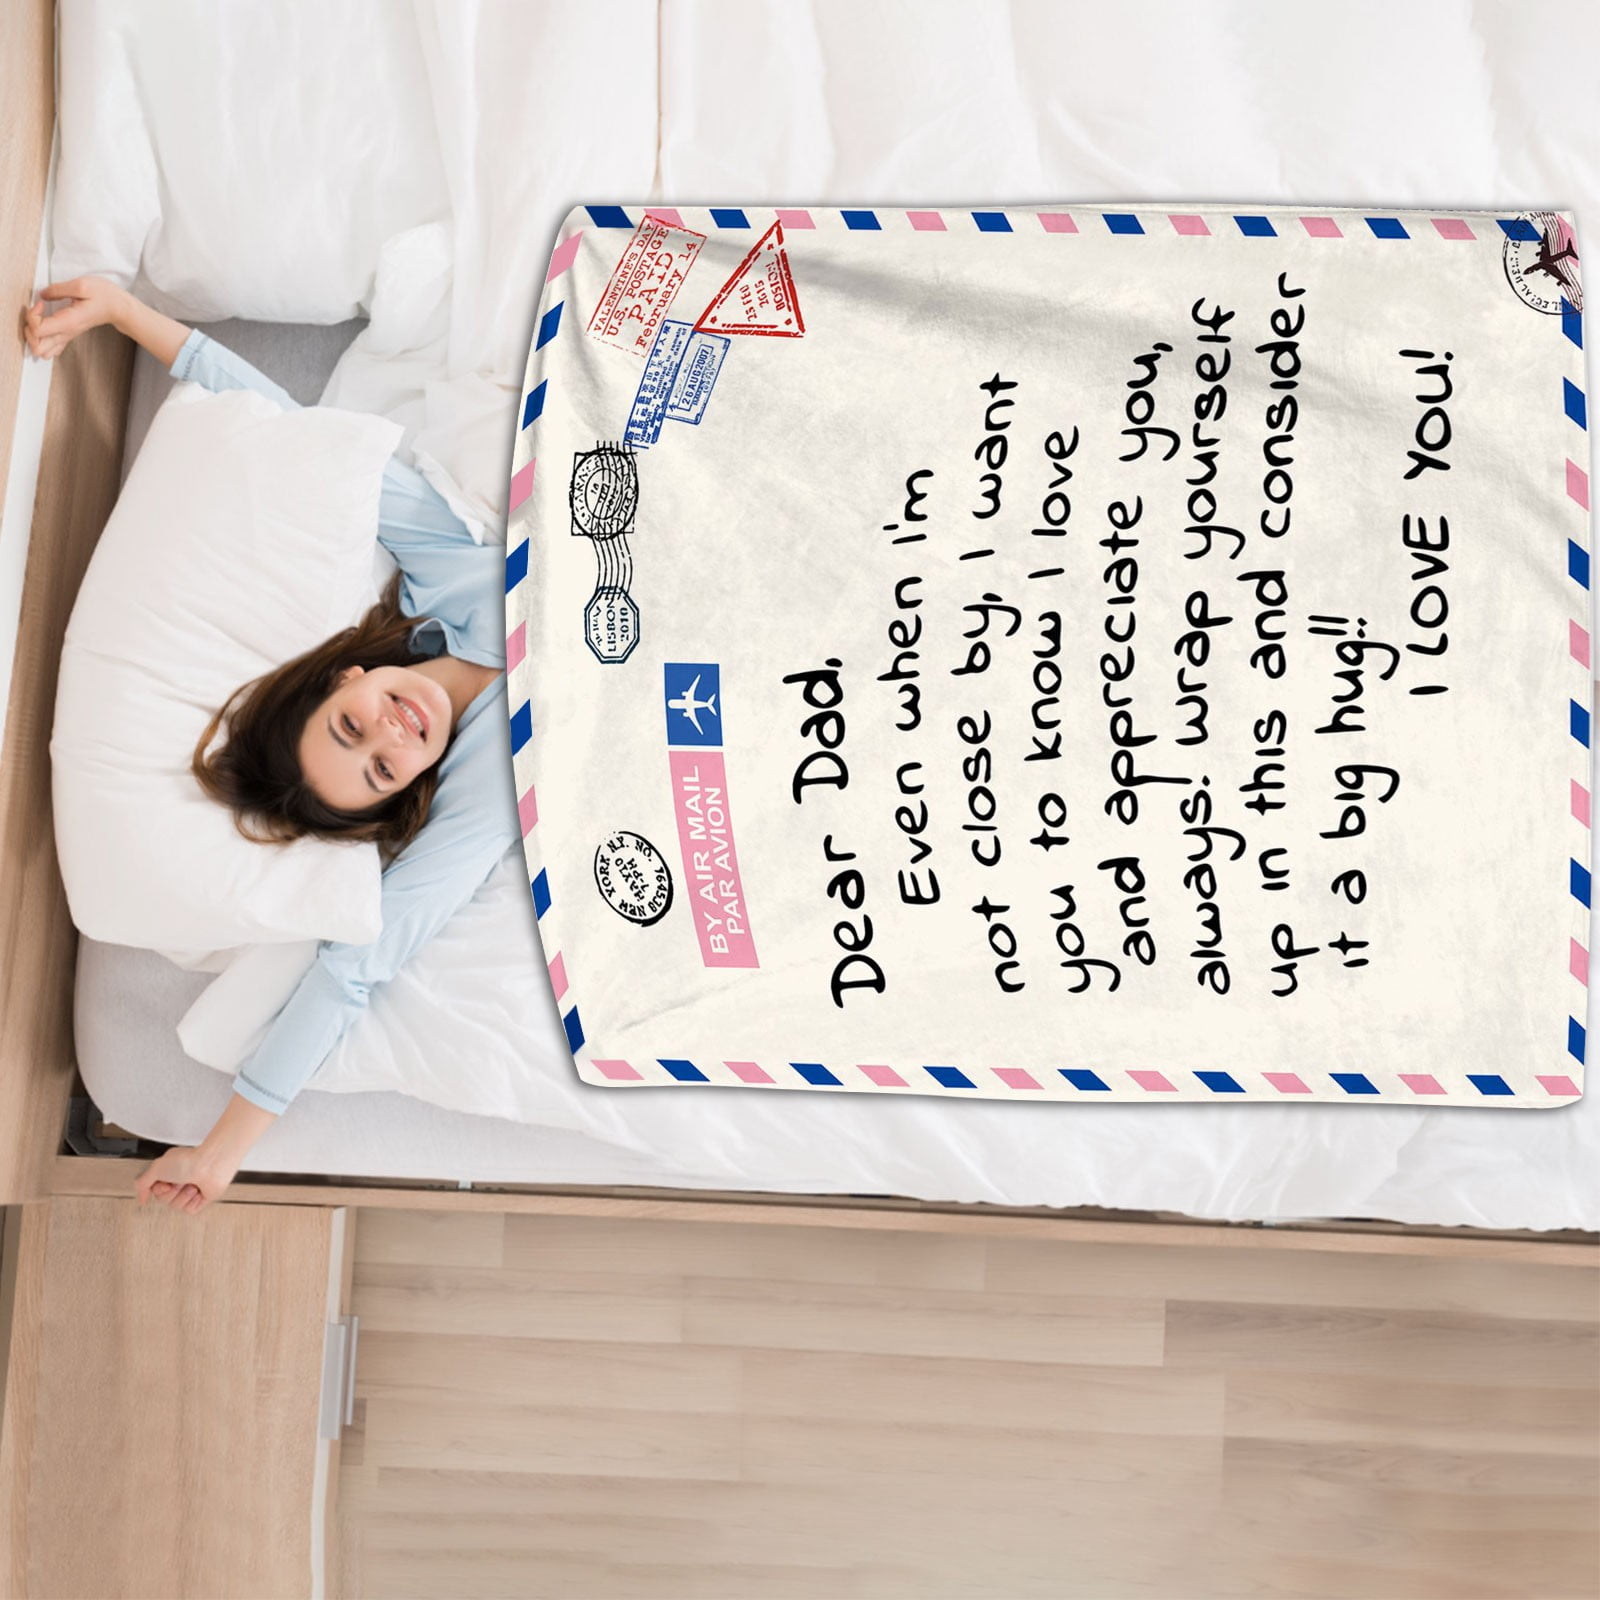 BY AIR MAIL
PAR AVION
LISBON
2010
VALENTINE'S DAY
U.S. POSTAGE
PAID
February 14
25 FEB
2015
BOSTON
26 AUG 2007
NEW YORK N.Y.
Dear Dad,
Even when I'm
not close by, I want
you to know I love
and appreciate you,
always! wrap yourself
up in this and consider
it a big hug!!
I LOVE YOU!